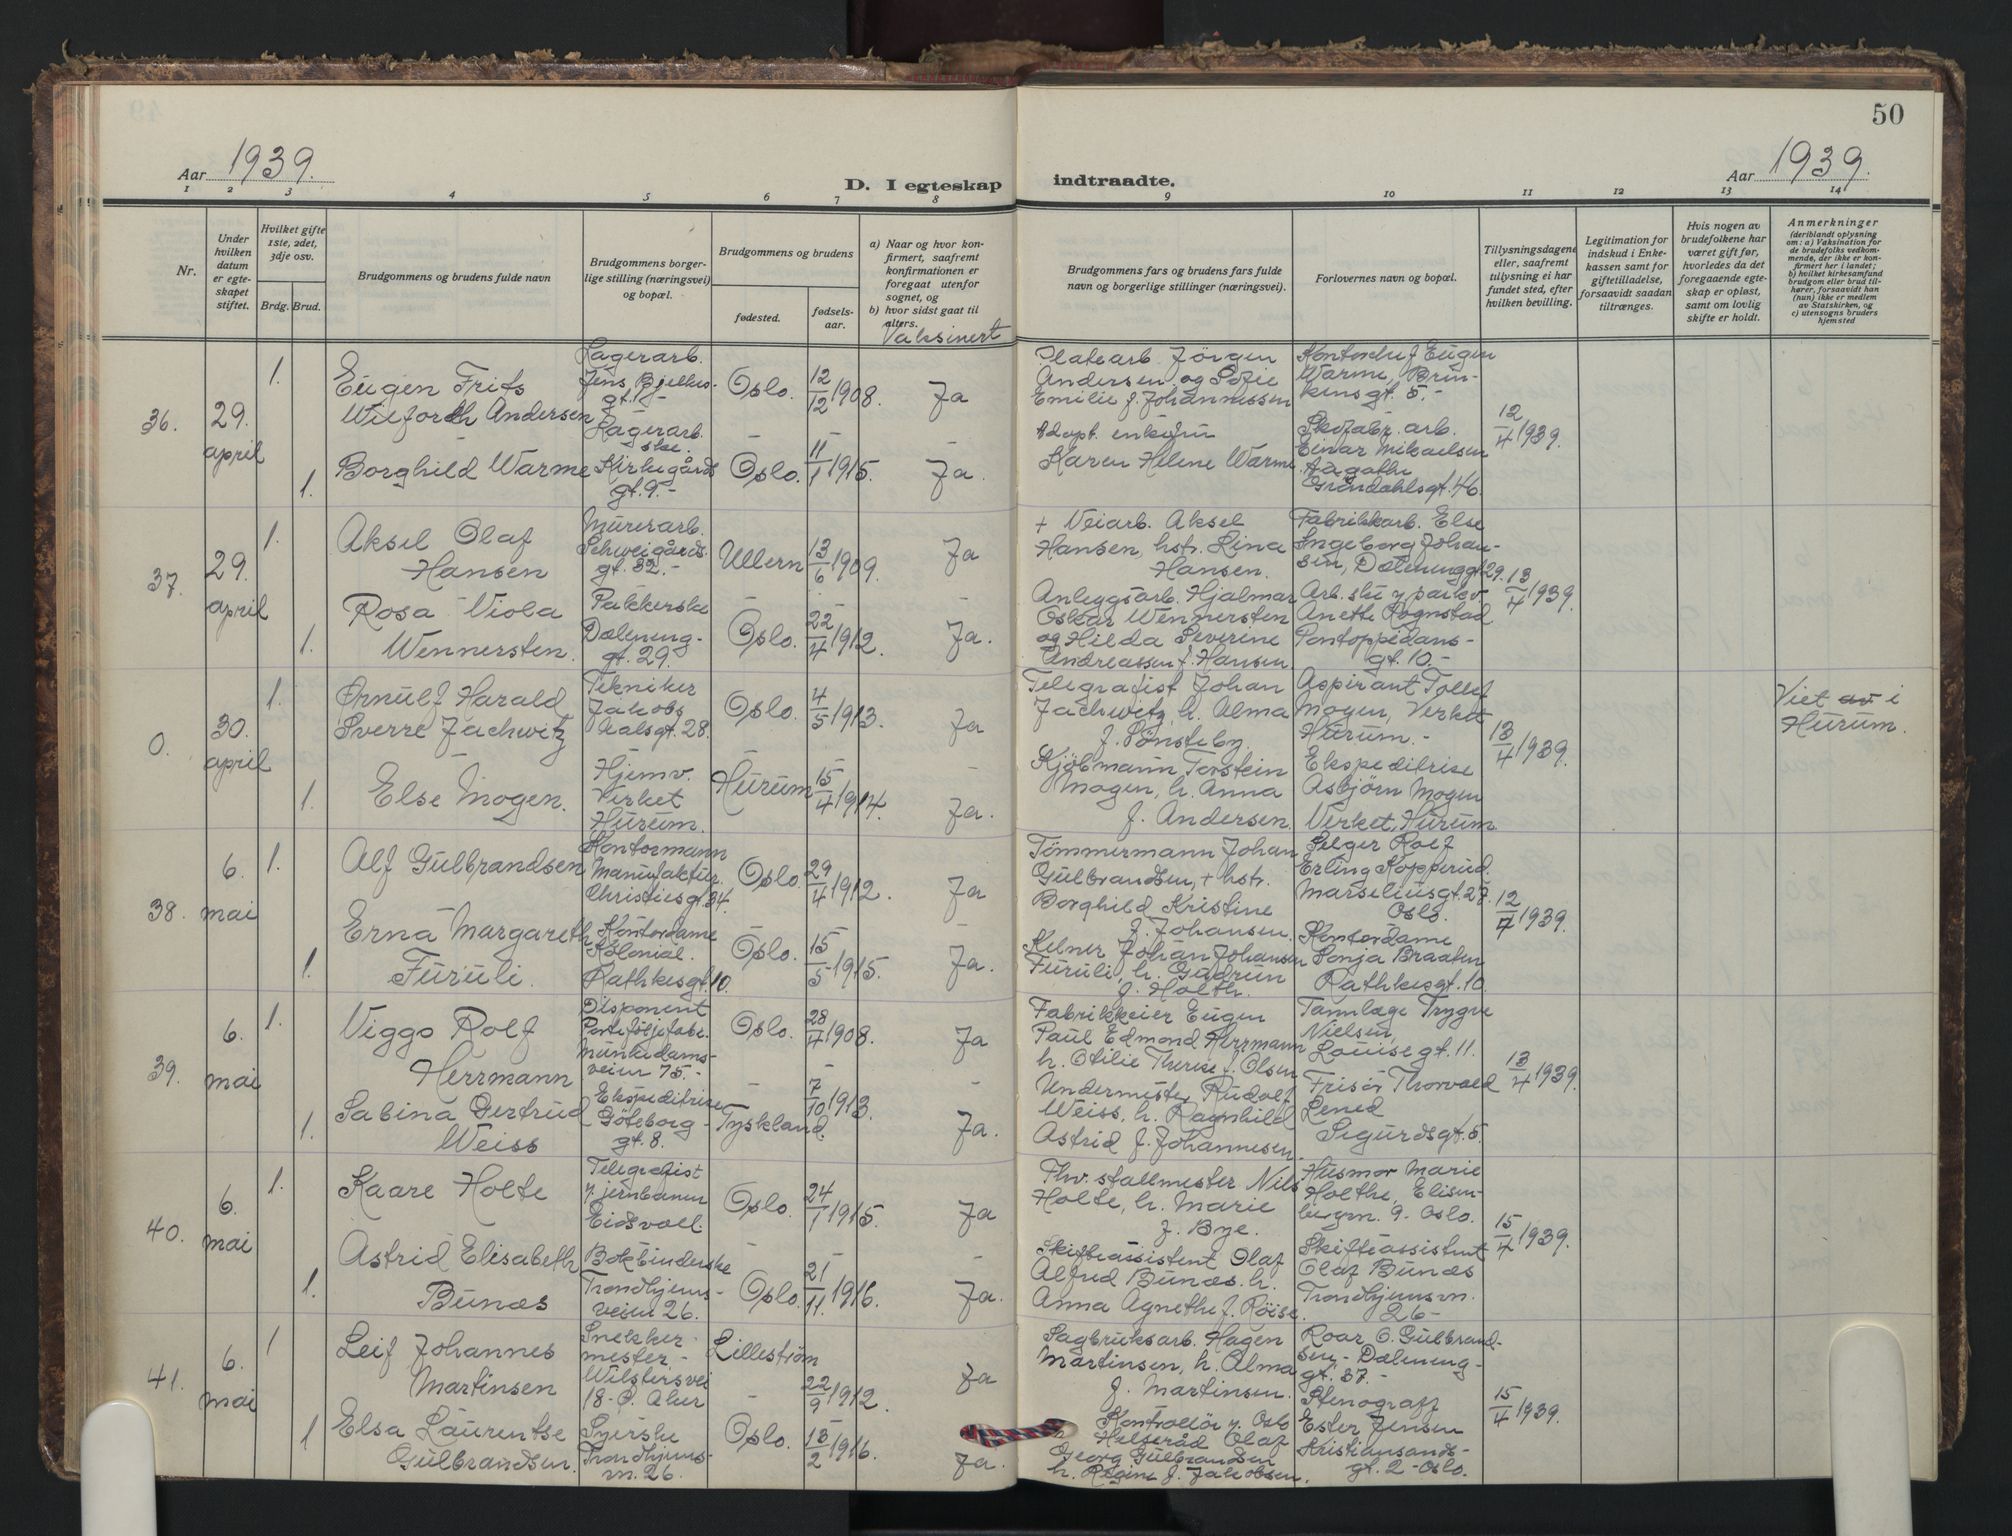 50
Aar 1939.
D. I egteskap indtraadte.
Aar 1939.
1 2 3 4 5 6 7 8 9 10 11 12 13 14
Nr.
Under hvilken datum er egteskapet stiftet.
Hvilket gifte 1ste, 2det, 3dje osv.
Brdg. Brud.
Brudgommens og brudens fulde navn
Brudgommens borgerlige stilling (næringsvei) og bopæl.
Brudgommens og brudens
fødested.
fødselsaar.
a) Naar og hvor konfirmert, saafremt konfirmationen er foregaat utenfor sognet, og
b) hvor sidst gaat til alters.
Vaksinert
Brudgommens fars og brudens fars fulde navn og borgerlige stillinger (næringsvei).
Forlovernes navn og bopæl.
Tillysningsdagene eller, saafremt tillysning ei har fundet sted, efter hvilken bevilling.
Legitimation for indskud i Enkekassen samt for giftetilladelse, forsaavidt saadan tiltrænges.
Hvis nogen av brudefolkene har været gift før, hvorledes da det foregaaende egteskap er opløst, samt om lovlig skifte er holdt.
Anmerkninger (deriblandt oplysning om: a) Vaksination for de brudefolks vedkommende, der ikke er konfirmert her i landet; b) hvilket kirkesamfund brudgom eller brud tilhører, forsaavidt han (hun) ikke er medlem av Statskirken, og c) utensogns bruders hjemsted
36. 29. april
1. Eugen Frits Wilforth Andersen
Lagerarb. Jens Bjelkes gt. 19-
Oslo. 12/12 1908. Ja
Platearb. Jörgen Andersen og Sofie Emilie f. Johannessen
Kontorchef Eugen Warme, Brinkens gt. 5.-
12/4 1939.
1. Borghild Warme
Lagerarb.ske. Kirkegårds gt. 9.-
Oslo. 11/1 1915. Ja.
Adopt. enkefru Karen Helene Warme.
Skofabr. arb. Einar Mikaelsen Aagathe Gröndahlsgt. 46.
37. 29. april
1. Aksel Olaf Hansen
Murerarb. Schweigårds gt. 32.-
Ullern 13/6 1909. Ja
+ Veiarb. Aksel Hansen, hstr. Lina Hansen.
Fabrikkarb. Else Ingeborg Johansen, Dælenenggt 29.
13/4 1939.
1. Rosa Viola Wennersten.
Pakkerske Dælenenggt. 29.
Oslo. 22/4 1912. Ja.
Anleggsarb. Hjalmar Oskar Wennersten og Hilda Severine Andreassen f. Hansen.
Arb.ske v parkv. Anette Rognstad Pontoppidansgt. 10.-
0. 30. april
1. Ørnulf Harald Sverre Jachwitz
Tekniker Jakobs Aalsgt. 28.
Oslo. 4/5 1913. Ja
Telegrafist Johan Jachwitz, h. Alma f. Sönsteby.
Aspirant Tollef Mogen, Verket Hurum.-
13/4 1939.
Viet av i Hurum.
1. Else Mogen.
Hjemv. Verket Hurum.
Hurum 15/4 1914. Ja.
Kjöbmann Torstein Mogen, h. Anna f. Andersen.
Ekspeditrise Asbjörn Mogen Verket, Hurum.
38. 6. mai
1. Alf Gulbrandsen
Kontormann Manufaktur. Christiesgt. 34.
Oslo. 29/4 1912. Ja
Tömmermann Johan Gulbrandsen, + hstr. Borghild Kristine f. Johansen.
Selger Rolf Erling Kopperud. Marseliusgt. 27. Oslo.
12/4 1939.
1. Erna Margareth Furuli.
Kontordame Kolonial. Rathkesgt. 10.
Oslo. 15/5 1915. Ja.
Kelner Johan Johansen Furuli, h. Gudrun f. Holth.
Kontordame Sonja Braaten Rathkesgt. 10.
39. 6. mai
1. Viggo Rolf Herrmann
Disponent Porteföljefabr. Munkedamsveien 75.-
Oslo. 28/4 1908. Ja
Fabrikkeier Eugen Paul Edmond Herrmann h. Otilie Therese f. Olsen
Tannlæge Trygve Nielsen, Louisegt. 11.
13/4 1939.
1. Sabina Gertrud Weiss
Ekspeditrise Göteborggt. 8.
Tyskland. 7/10 1913. Ja.
Undermester Rudolf Weiss, h. Ragnhild Astrid f. Johannesen.
Frisör Thorvald Lened Sigurdsgt. 5.
40. 6. mai
1. Kaare Holte
Telegrafist v. jernbanen Eidsvoll.
Oslo. 24/1 1915. Ja
Fhv. stallmester Nils Holte, h. Marie f. Bye.
Husmor Marie Holthe, Elisenbergvn. 9 - Oslo.
15/4 1939.
1. Astrid Elisabeth Bunæs
Bokbinderske Trondhjemsveien 26.
Oslo. 21/11. 1916. Ja.
Skifteassistent Olaf Alfred Bunæs. h. Anna Agnethe f. Röise.
Skifteassistent Olaf Bunæs Trondhjemsvn. 26-
41. 6. mai
1 Leif Johannes Martinsen
Snekkermester.- Wilstersvei 18 - Ö. Aker
Lilleström 22/9 1912. Ja
Sagbruksarb. Hagen Martinsen, h. Alma f. Martinsen.
Roar O. Gulbrandsen - Dælenenggt. 37.-
15/4 1939.
1 Elsa Laurentse Gulbrandsen.
Syerske Trondhjemsvn. 26.
Oslo. 13/2 1916. Ja.
Kontrollör v. Oslo Helseråd Olaf Georg Gulbrandsen h. Regine f. Jakobsen.
Stenograf Ester Jensen Kristiansandsgt. 2 - Oslo.